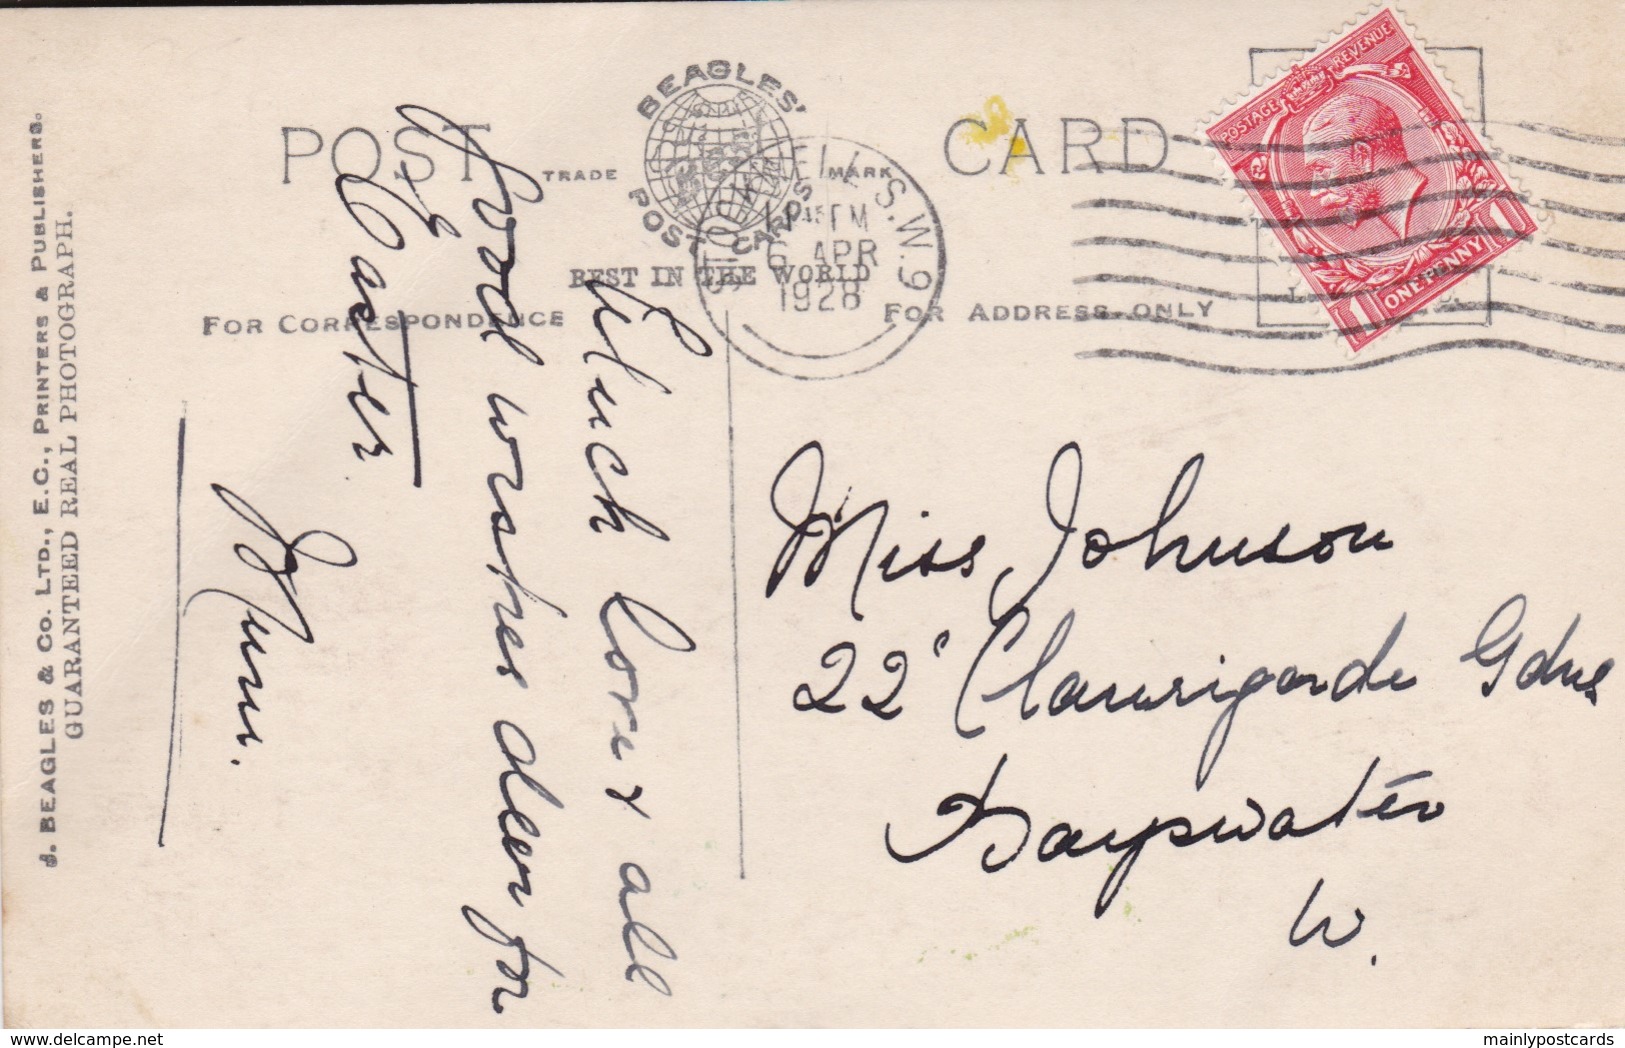 POST CARD
BEAGLES'
POST CARDS
TRADE MARK
BEST IN THE WORLD
FOR CORRESPONDENCE
FOR ADDRESS ONLY
J. BEAGLES & CO. LTD., E.C., PRINTERS & PUBLISHERS.
GUARANTEED REAL PHOTOGRAPH.
STOCKWELL S.W.9
11.15 PM
6 APR
1928
POSTAGE REVENUE
1 ONE PENNY 1
Much love & all
good wishes dear for
Easter
Mum.
Miss Johnson
22 Clanricarde Gdns
Bayswater
W.
mainlypostcards